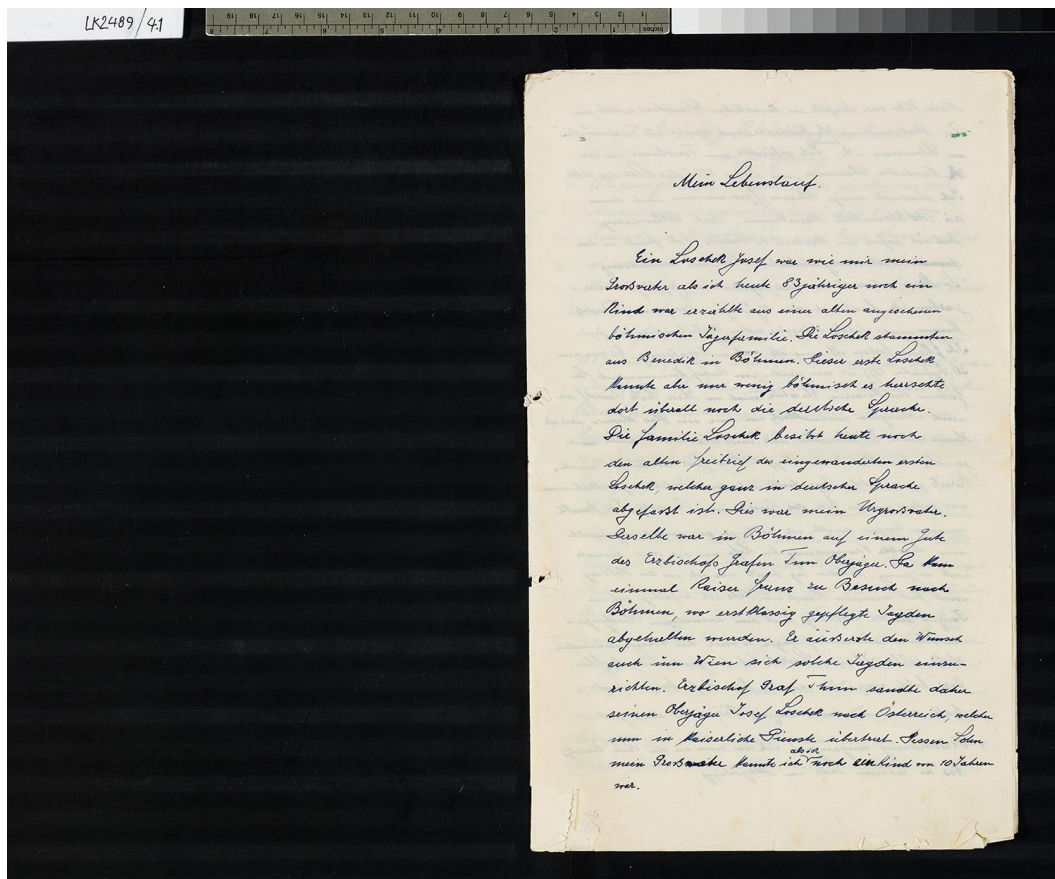 LK2489/41
Mein Lebenslauf.
Ein Loschek Josef war wie mir mein
Großvater als ich heute 83jähriger noch ein
Kind war erzählte aus einer alten angesehenen
böhmischen Jägerfamilie. Die Loschek stammten
aus Benedik in Böhmen. Dieser erste Loschek
kannte aber nur wenig böhmisch es herrschte
dort überall noch die deutsche Sprache.
Die Familie Loschek besitzt heute noch
den alten Freibrief des eingewanderten ersten
Loschek, welcher ganz in deutscher Sprache
abgefasst ist. Dies war mein Urgroßvater.
Derselbe war in Böhmen auf einem Gute
des Erzbischofs Grafen Tun Oberjäger. Da kam
einmal Kaiser Franz zu Besuch nach
Böhmen, wo erstklassig gepflegte Jagden
abgehalten wurden. Er äüsserte den Wunsch
auch inn Wien sich solche Jagden einzu-
richten. Erzbischof Graf Thun sandte daher
seinen Oberjäger Josef Loschek nach Österreich, welcher
nun in kaiserliche Dienste übertrat. Dessen Sohn
mein Großvater kannte ich als ich noch ein Kind von 10 Jahren
war.